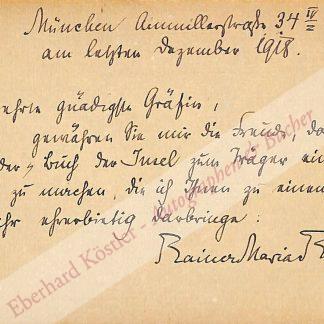 München Ainmillerstraße 34 IV
am letzten Dezember 1918.
ehrte gnädigste Gräfin,
gewähren Sie mir die Freude, da
der „Buch der Insel zum Träger ein
zu machen, die ich Ihnen zu einem
ihr ehrerbietig darbringe:
Rainer Maria R
Eberhard Köstler - Autographen & Bücher